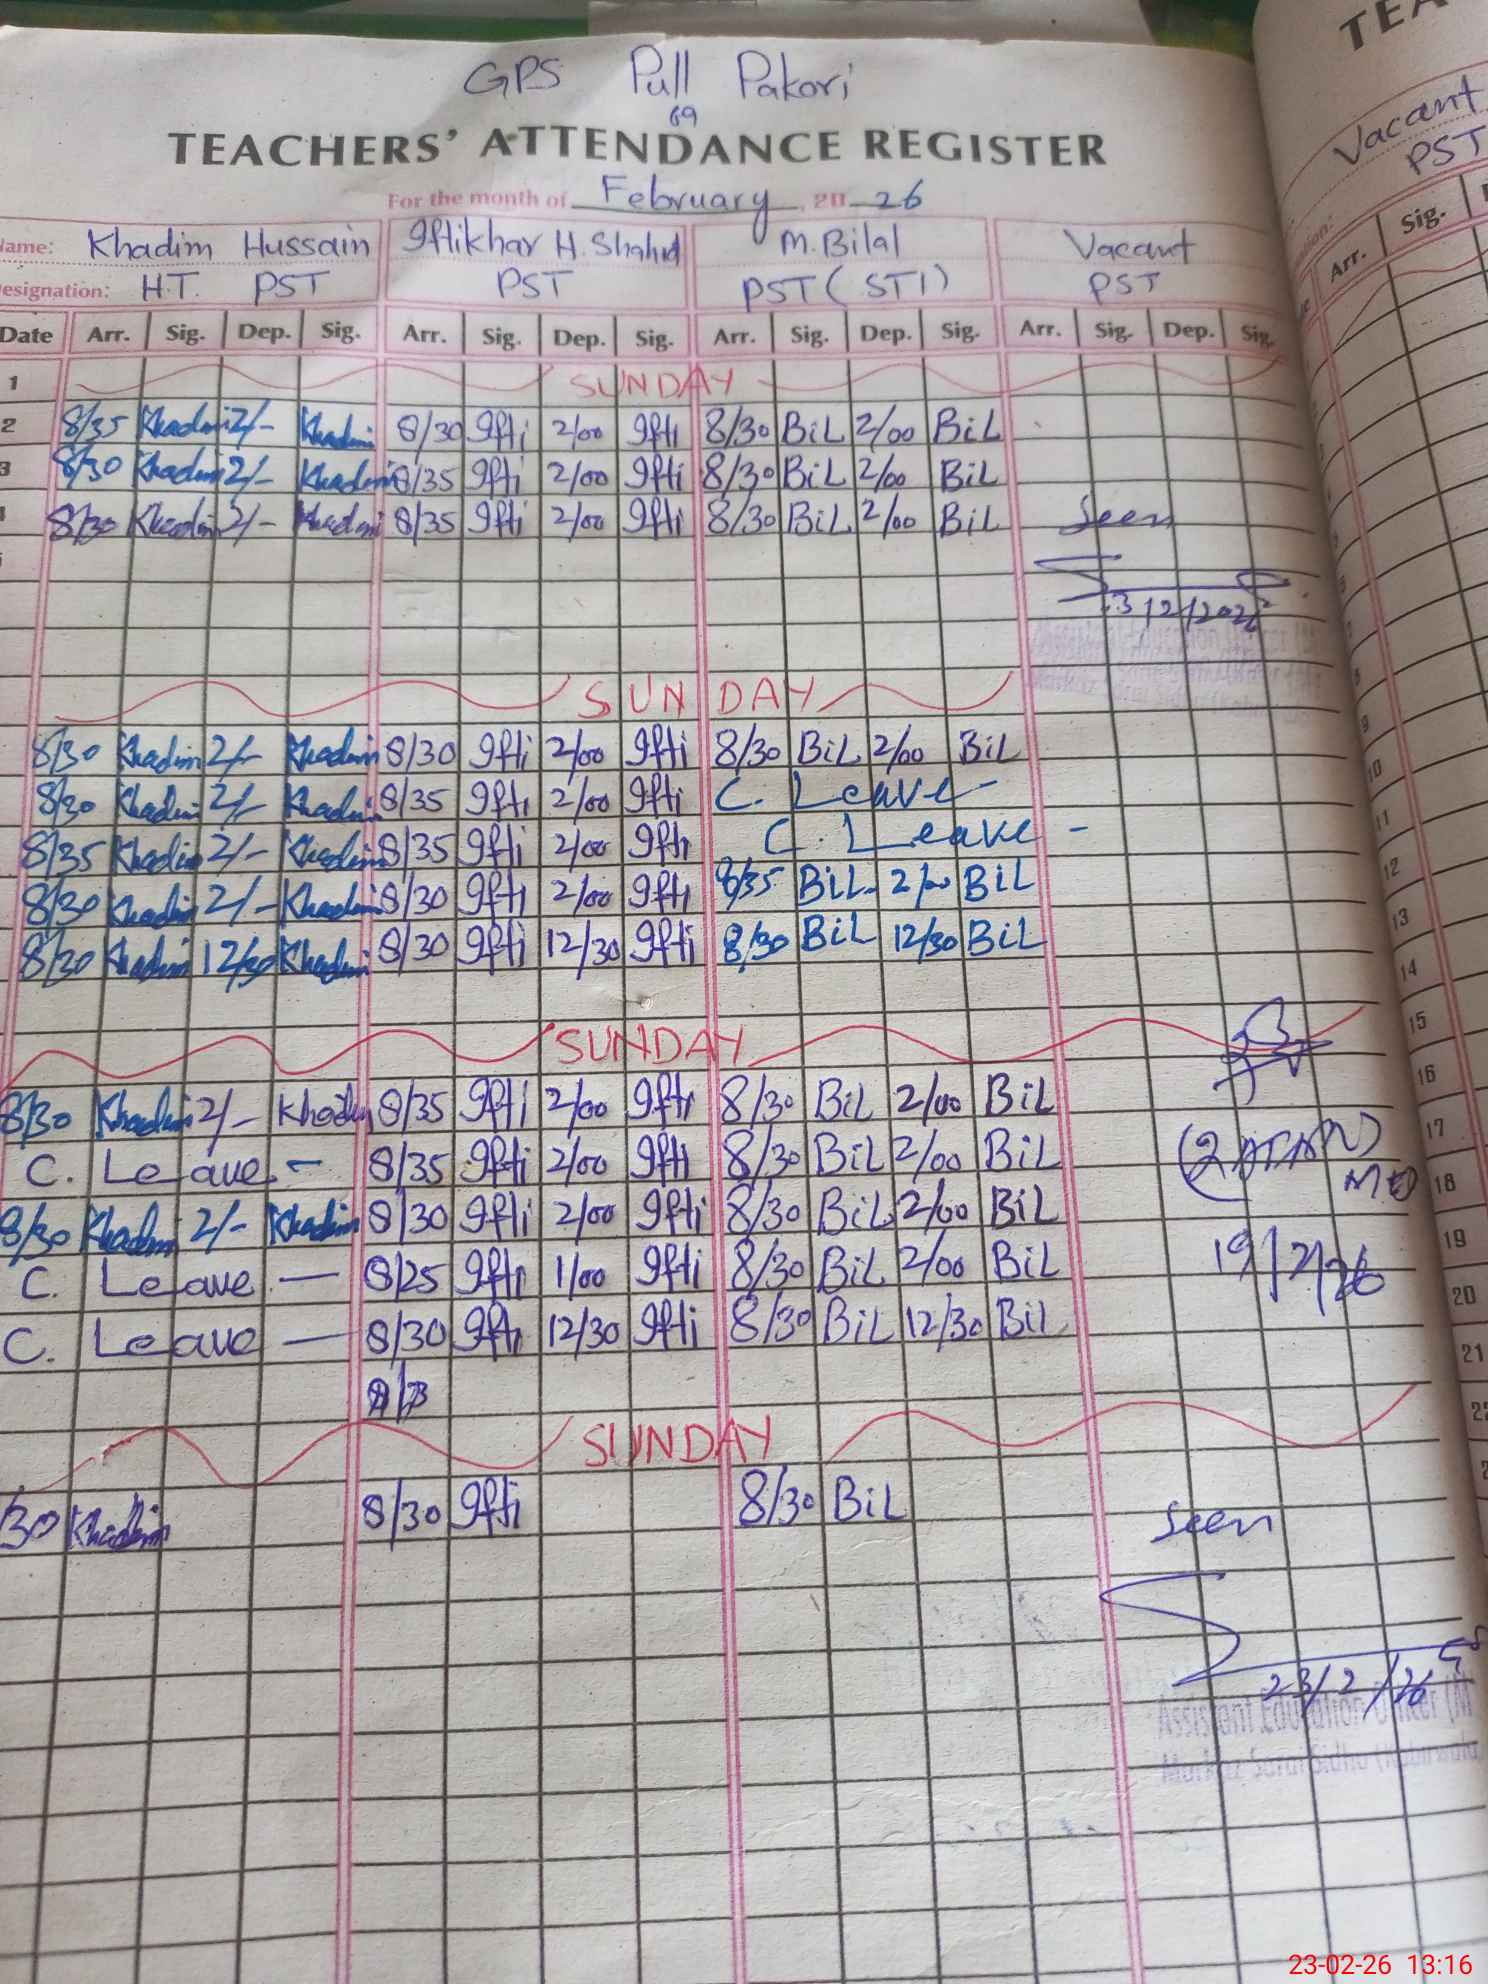 GPS Pull Pakori
69
TEACHERS' ATTENDANCE REGISTER
For the month of February, 2026
Name: Khadim Hussain Iftikhar H. Shahid M. Bilal Vacant
Designation: H.T. PST PST PST (STI) PST
Date Arr. Sig. Dep. Sig. Arr. Sig. Dep. Sig. Arr. Sig. Dep. Sig. Arr. Sig. Dep. Sig.
1 SUNDAY
2 8/35 Khadim 2/- Khadim 8/30 Ifti 2/00 Ifti 8/30 BiL 2/00 BiL
3 8/30 Khadim 2/- Khadim 8/35 Ifti 2/00 Ifti 8/30 BiL 2/00 BiL
8/30 Khadim 2/- Khadim 8/35 Ifti 2/00 Ifti 8/30 BiL 2/00 BiL Seen
SUNDAY
8/30 Khadim 2/- Khadim 8/30 Ifti 2/00 Ifti 8/30 BiL 2/00 BiL
8/30 Khadim 2/- Khadim 8/35 Ifti 2/00 Ifti C. Leave -
8/35 Khadim 2/- Khadim 8/35 Ifti 2/00 Ifti C. Leave -
8/30 Khadim 2/- Khadim 8/30 Ifti 2/00 Ifti 8/35 BiL 2/00 BiL
8/30 Khadim 12/30 Khadim 8/30 Ifti 12/30 Ifti 8/30 BiL 12/30 BiL
SUNDAY
8/30 Khadim 2/- Khadim 8/35 Ifti 2/00 Ifti 8/30 BiL 2/00 BiL
C. Leave - 8/35 Ifti 2/00 Ifti 8/30 BiL 2/00 BiL
8/30 Khadim 2/- Khadim 8/30 Ifti 2/00 Ifti 8/30 BiL 2/00 BiL
C. Leave - 8/25 Ifti 1/00 Ifti 8/30 BiL 2/00 BiL 19/2/26
C. Leave - 8/30 Ifti 12/30 Ifti 8/30 BiL 12/30 BiL
SUNDAY
/30 Khadim 8/30 Ifti 8/30 BiL Seen
23/2/26
Assistant Education Officer
Vacant
PST
Arr. Sig.
9
10
11
12
13
14
15
16
17
18
19
20
21
23-02-26 13:16